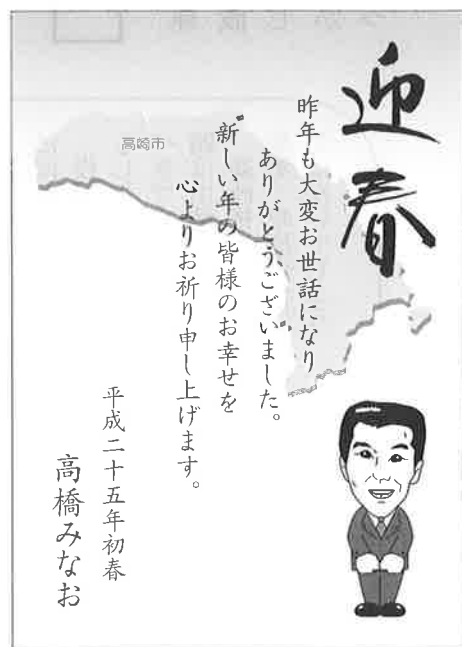 迎春
昨年も大変お世話になり
ありがとうございました。
新しい年の皆様のお幸せを
心よりお祈り申し上げます。
平成二十五年初春
高橋みなお
高崎市